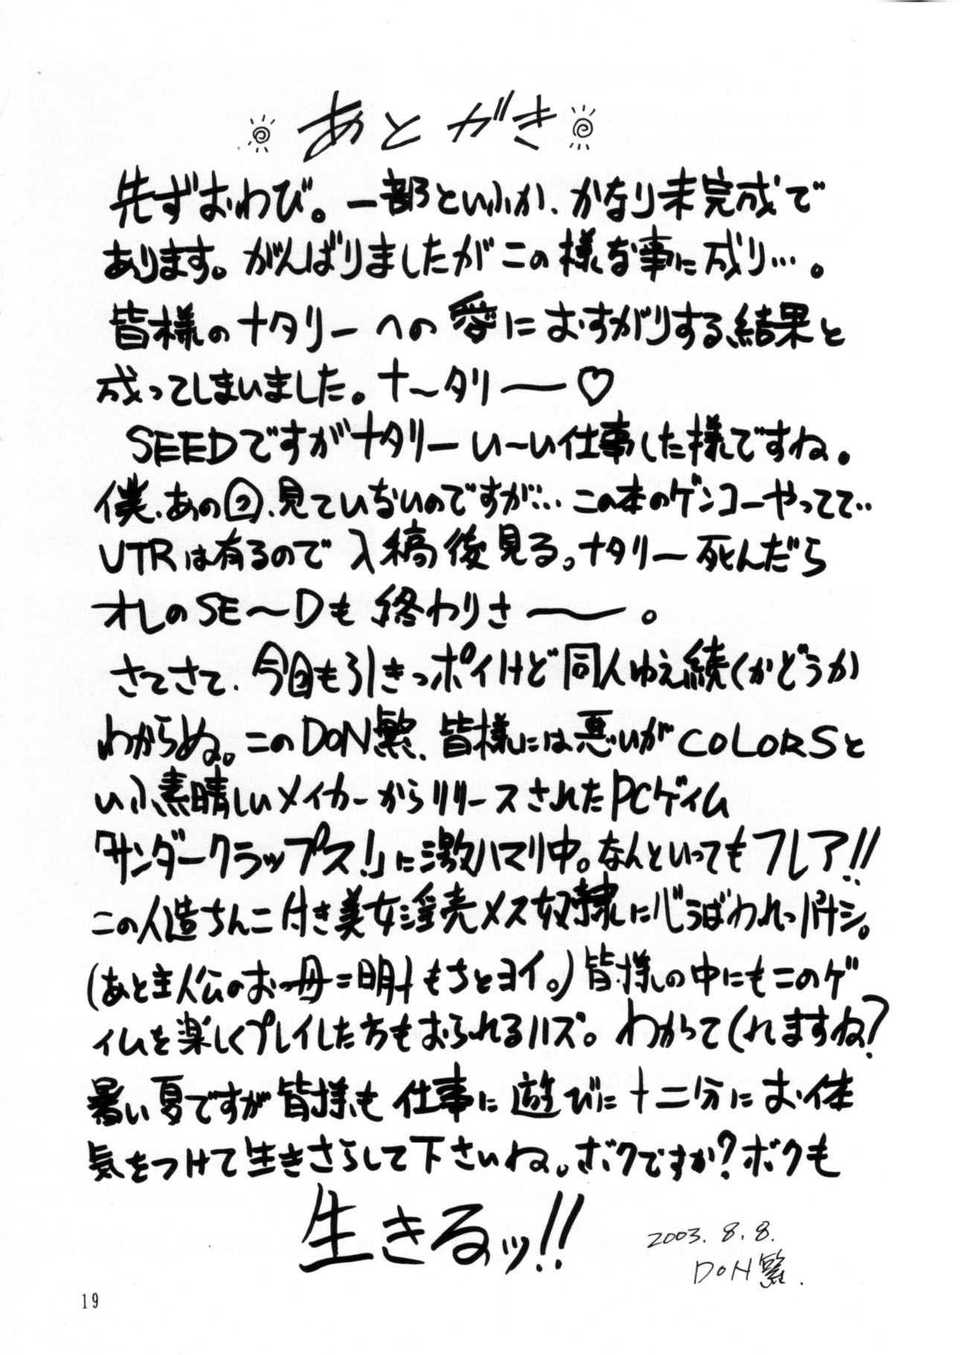 あとがき
先ずおわび。一部といふか、かなり未完成で
あります。がんばりましたがこの様な事に成り…。
皆様のナタリーへの愛におすがりする、結果と
成ってしまいました。ナ〜タリ――♡
SEEDですがナタリーい〜い仕事した様ですね。
僕、あの回、見ていないのですが… この本のゲンコーやってて‥
VTRは有るので入稿後見る。ナタリー死んだら
オレのSE〜Dも終わりさ――。
さてさて、今回も引きっポイけど同人ゆえ続くかどうか
わからぬ。このDON繁、皆様には悪いがCOLORSと
いふ素晴しいメイカーからリリースされたPCゲイム
「サンダークラップス!」に激ハマリ中。なんといってもフレア!!
この人造ちんこ付き美女淫売メス奴隷に心うばわれっパナシ。
(あと主人公のお母ニ明†もちとヨイ。)皆様の中にもこのゲ
イムを楽しくプレイした方もおられるハズ。わかってくれますね?
暑い夏ですが皆様も仕事に遊びに十二分にお体
気をつけて生きさらして下さいね。ボクですか?ボクも
生きるッ!!
2003.8.8.
DON繁.
19